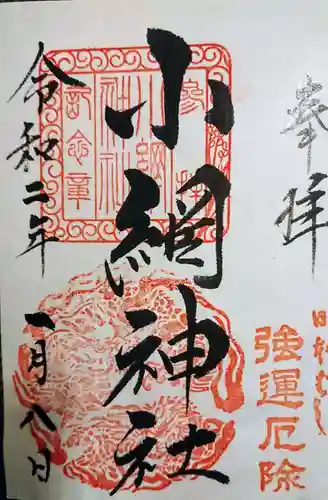 奉拝
強運厄除
小網神社
参拝
小網神社
記念章
令和二年
一月八日